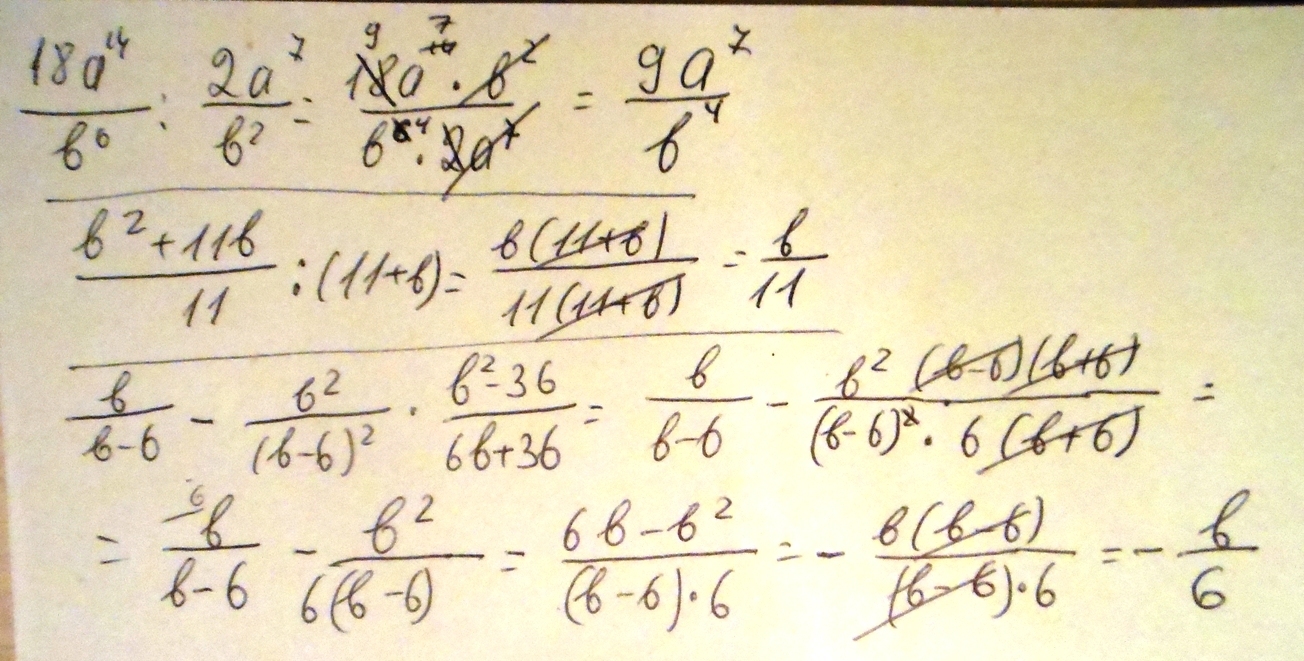 18a¹⁴/b⁶ : 2a⁷/b² = 18a¹⁴ · b²/b⁶ · 2a⁷ = 9a⁷/b⁴
b² + 11b/11 : (11+b) = b(11+b)/11(11+b) = b/11
b/b-6 - b²/(b-6)² · b²-36/6b+36 = b/b-6 - b²(b-6)(b+6)/(b-6)² · 6(b+6) =
= ⁶b/b-6 - b²/6(b-6) = 6b-b²/(b-6)·6 = - b(b-6)/(b-6)·6 = - b/6